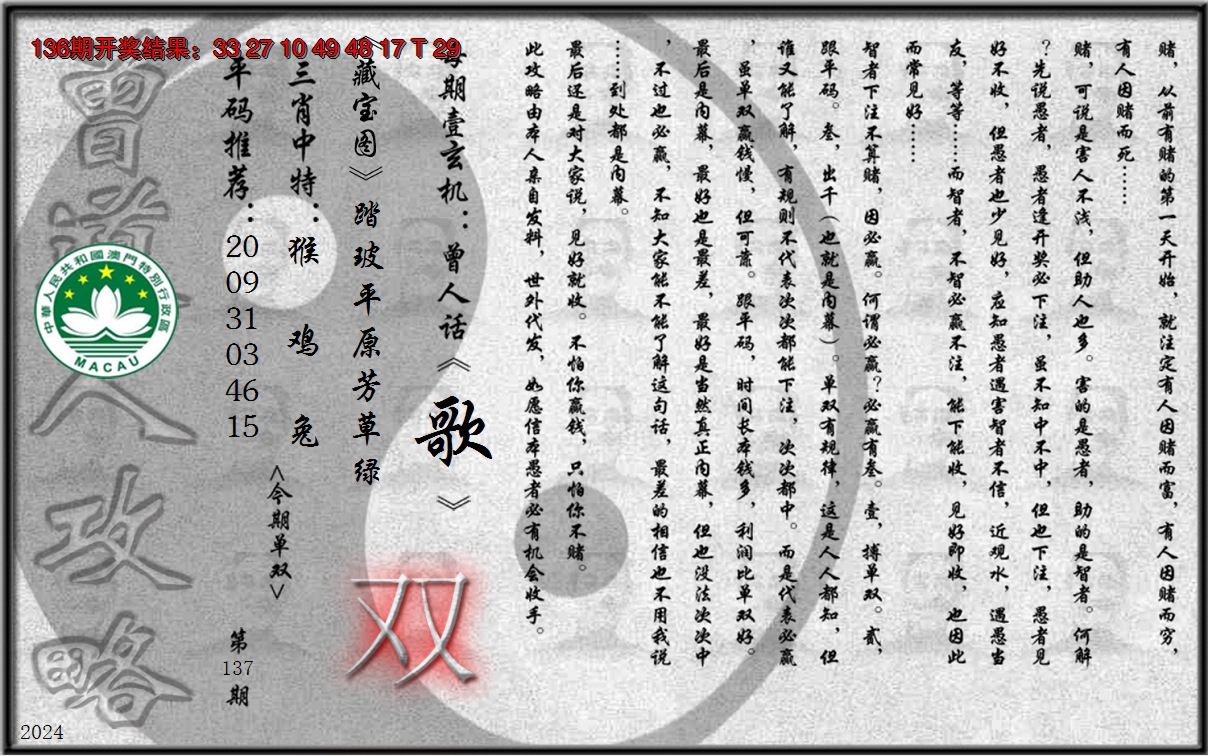 136期开奖结果：33 27 10 49 48 17 T 29
赌，从前有赌的第一天开始，就注定有人因赌而富，有人因赌而穷，
有人因赌而死……
赌，可说是害人不浅，但助人也多。害的是愚者，助的是智者。何解
？先说愚者，愚者逢开奖必下注，虽不知中不中，但也下注，愚者见
好不收，但愚者也少见好，应知愚者遇害智者不信，近观水，遇愚当
友，等等……而智者，不智必赢不注，能下能收，见好即收，也因此
而常见好……
智者下注不算赌，因必赢。何谓必赢？必赢有叁。壹，搏单双。贰，
跟平码。叁，出千（也就是内幕）。单双有规律，这是人人都知，但
谁又能了解，有规则不代表次次都能下注，次次都中。而是代表必赢
，虽单双赢钱慢，但可靠。跟平码，时间长本钱多，利润比单双好。
最后是内幕，最好也是最差，最好是当然真正内幕，但也没法次次中
，不过也必赢，不知大家能不能了解这句话，最差的相信也不用我说
……到处都是内幕。
最后还是对大家说，见好就收。不怕你赢钱，只怕你不赌。
此攻略由本人亲自发料，世外代发，如愿信本愚者必有机会收手。
每期壹玄机：曾人话《歌》
《藏宝图》踏玻平原芳草绿
三肖中特：猴 鸡 兔
<今期单双>
双
平码推荐：20 09 31 03 46 15
第137期
曾道人攻略
中華人民共和國澳門特別行政區
MACAU
2024